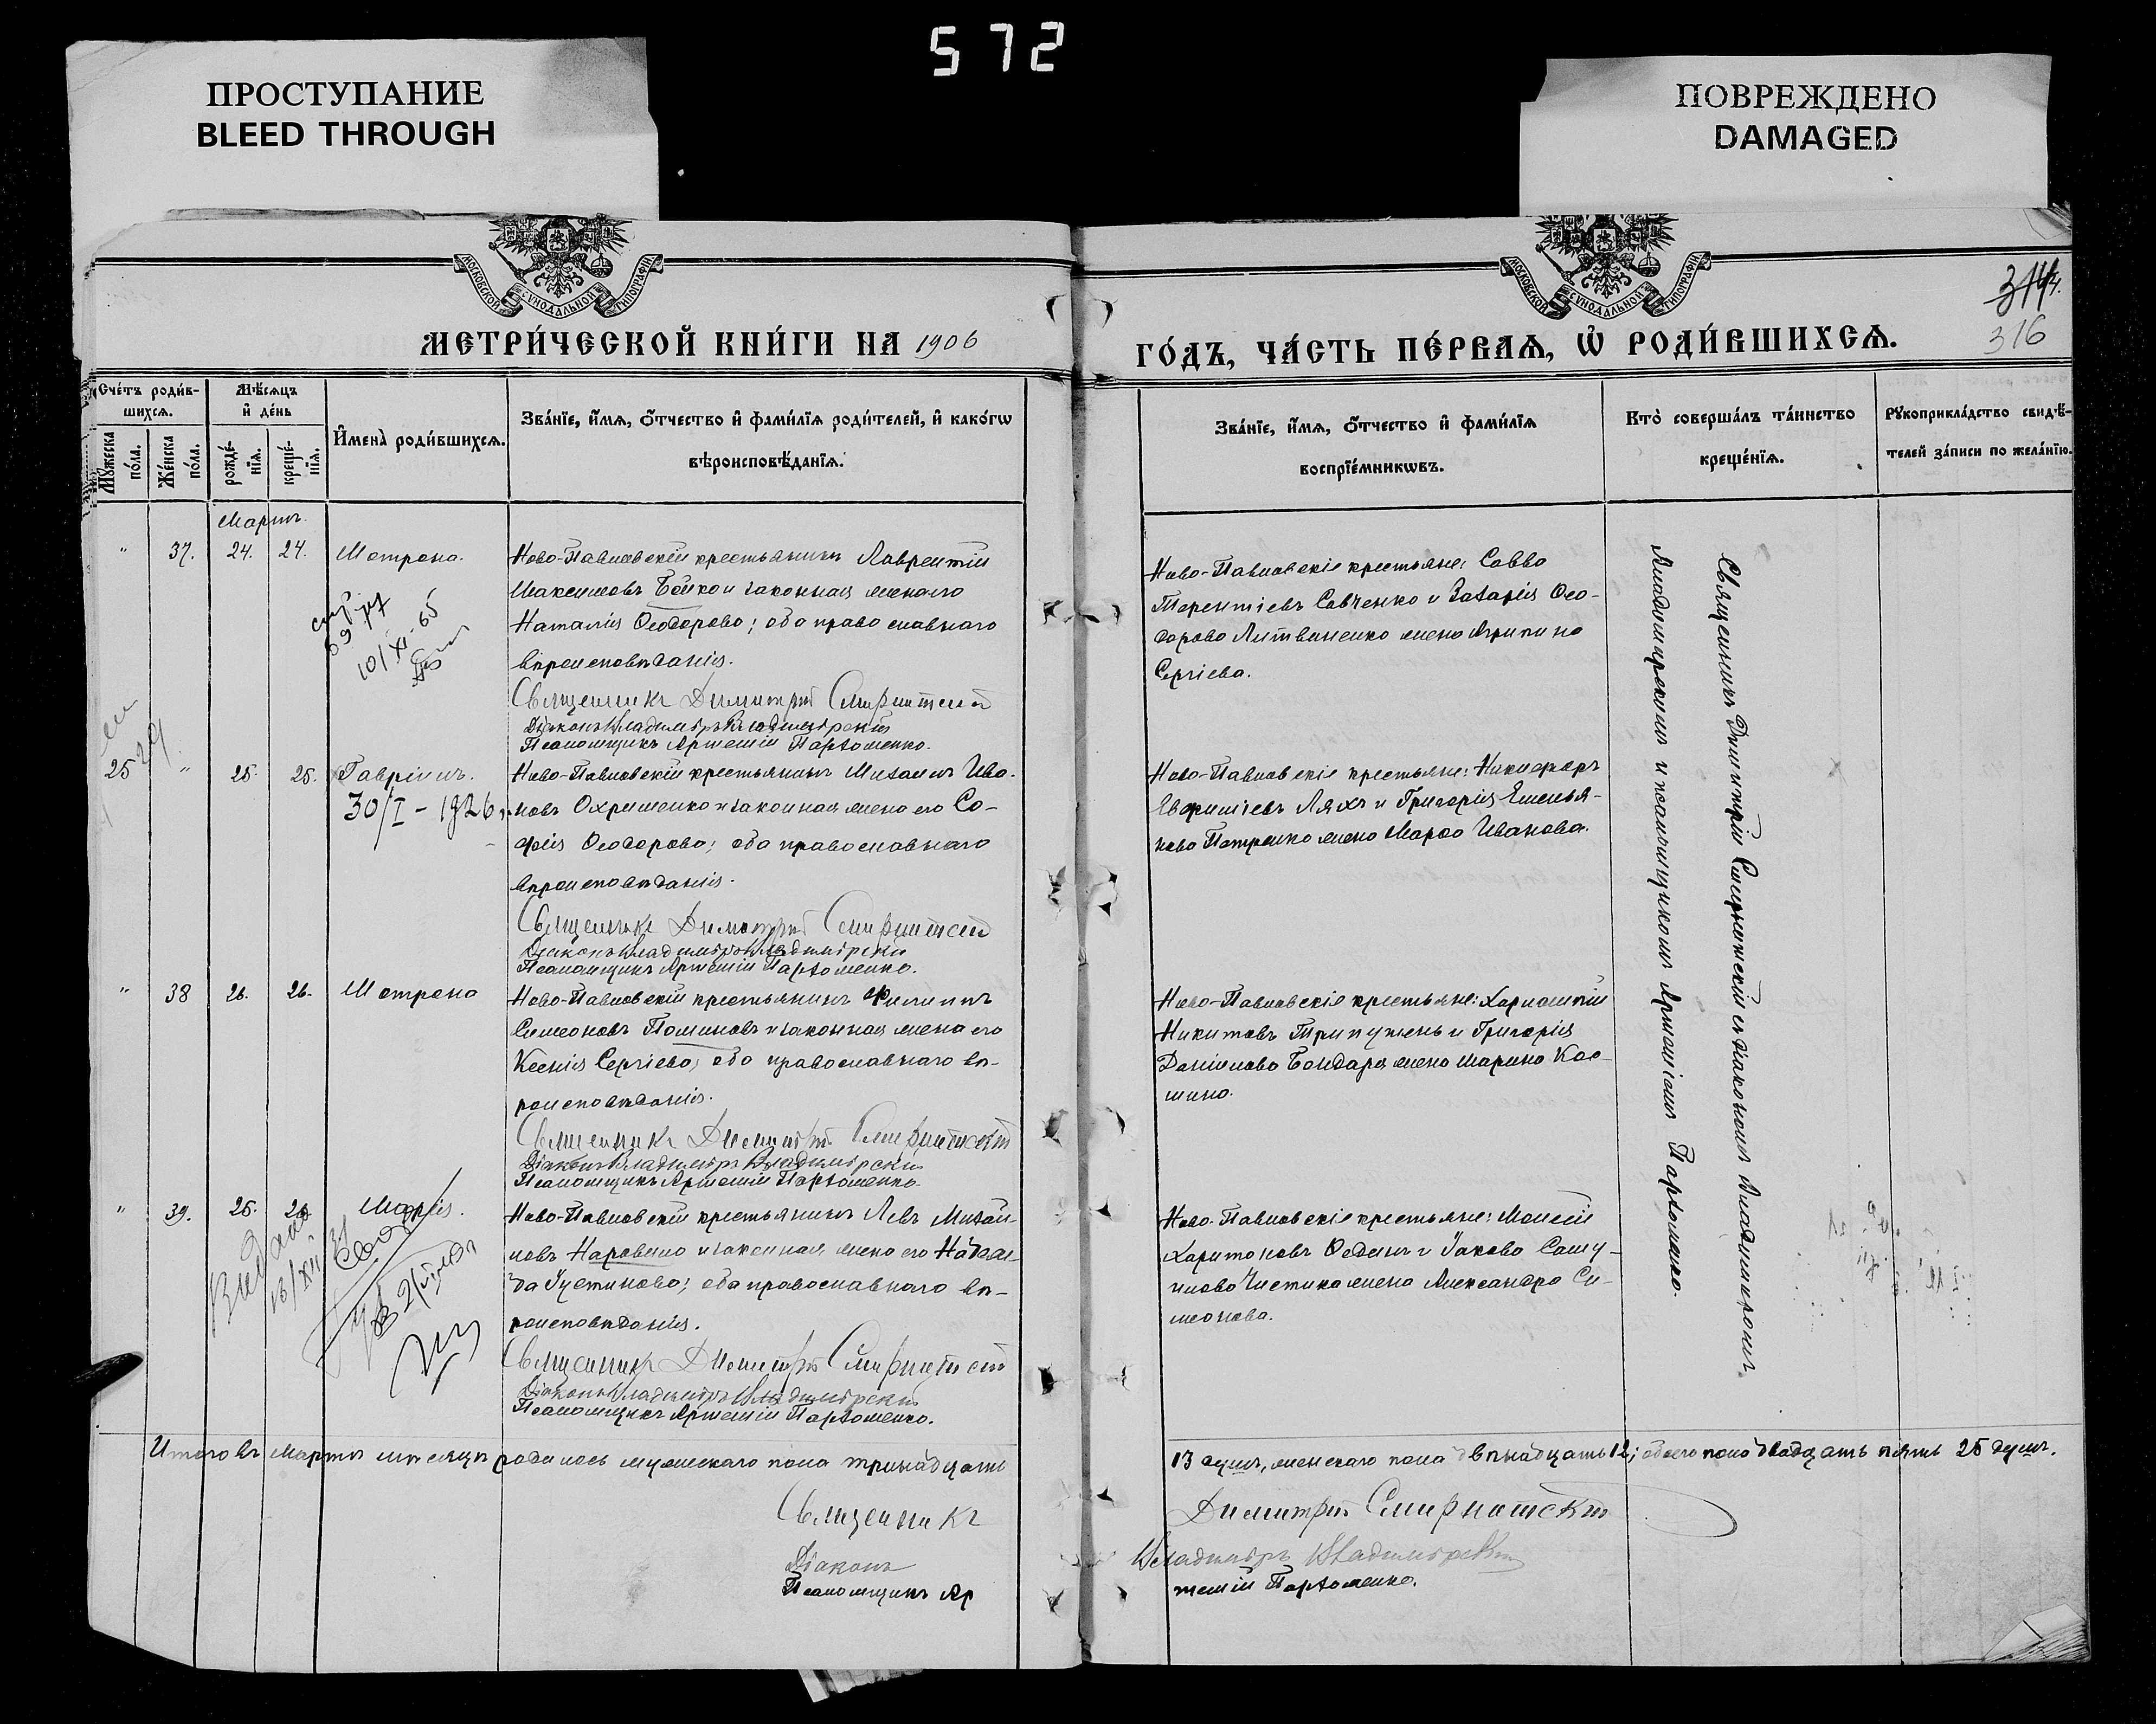 572
ПРОСТУПАНИЕ
BLEED THROUGH
ПОВРЕЖДЕНО
DAMAGED
МОСКОВСКОЙ СѴНОДАЛЬНОЙ ТИПОГРАФІИ
МОСКОВСКОЙ СѴНОДАЛЬНОЙ ТИПОГРАФІИ
314.
316
МЕТРИ́ЧЕСКОЙ КНИ́ГИ НА 1906
ГО́ДЪ, ЧА́СТЬ ПЕ́РВАѦ, Ѡ҆ РОДИ́ВШИХСѦ.
Сче́тъ роди́в-
шихсѧ.
Мꙋ́жеска по́ла.
Же́нска по́ла.
Мѣ́сѧцъ
и҆ де́нь
рожде́-
нїѧ.
креще́-
нїѧ.
И҆мена̀ роди́вшихсѧ.
Зва́нїе, и҆́мѧ, ѻ҆́тчество и҆ фами́лїѧ роди́телей, и҆ како́гѡ
вѣроисповѣ́данїѧ.
Зва́нїе, и҆́мѧ, ѻ҆́тчество и҆ фами́лїѧ
воспрїе́мникѡвъ.
Кто̀ соверша́лъ та́инство
креще́нїѧ.
Рꙋкоприкла́дство свидѣ́-
телей за́писи по жела́нїю.
Мартъ.
" 37. 24. 24. Матрона.
Ново-Павловскій крестьянинъ Лаврентій
Максимовъ Бойко и законная жена его
Наталія Ѳеодорова; оба православнаго
вѣроисповѣданія.
Священникъ Димитрій Смирнитскій
Діаконъ Владиміръ Владимірскій
Псаломщикъ Артемій Пархоменко.
Ново-Павловскіе крестьяне: Савва
Терентіевъ Савченко и Захарія Ѳео-
дорова Литвиненко жена Агрипина
Сергіева.
10/XI-65
25 " 25. 25. Гавріилъ.
30/I - 1926
Ново-Павловскій крестьянинъ Михаилъ Ива-
новъ Охрименко и законная жена его Со-
фія Ѳеодорова; оба православнаго
вѣроисповѣданія.
Священникъ Димитрій Смирнитскій
Діаконъ Владиміръ Владимірскій
Псаломщикъ Артемій Пархоменко.
Ново-Павловскіе крестьяне: Никифоръ
Евфиміевъ Ляхъ и Григорія Емелья-
нова Петренко жена Марѳа Иванова.
" 38 26. 26. Матрона
Ново-Павловскій крестьянинъ Филиппъ
Симеоновъ Полиновъ и законная жена его
Ксенія Сергіева; оба православнаго вѣ-
роисповѣданія.
Священникъ Димитрій Смирнитскій
Діаконъ Владиміръ Владимірскій
Псаломщикъ Артемій Пархоменко.
Ново-Павловскіе крестьяне: Харлампій
Никитовъ Трипутень и Григорія
Даніилова Бондаря жена Марина Кос-
мина.
" 39. 25. 26 Марія.
Ново-Павловскій крестьянинъ Левъ Михаи-
ловъ Наровено и законная жена его Надеж-
да Густинова; оба православнаго вѣ-
роисповѣданія.
Священникъ Димитрій Смирнитскій
Діаконъ Владиміръ Владимірскій
Псаломщикъ Артемій Пархоменко.
Ново-Павловскіе крестьяне: Моисей
Харитоновъ Фединъ и Іакова Саму-
илова Чистика жена Александра Си-
меонова.
Священникъ Димитрій Смирнитскій съ діакономъ Владиміромъ
Владимірскимъ и псаломщикомъ Артеміемъ Пархоменко.
Итого въ мартѣ мѣсяцѣ родилось мужескаго пола тринадцать
13 душъ, женскаго пола двѣнадцать 12; обоего пола двадцать пять 25 душъ.
Священникъ Димитрій Смирнитскій
Діаконъ Владиміръ Владимірскій
Псаломщикъ Артемій Пархоменко.